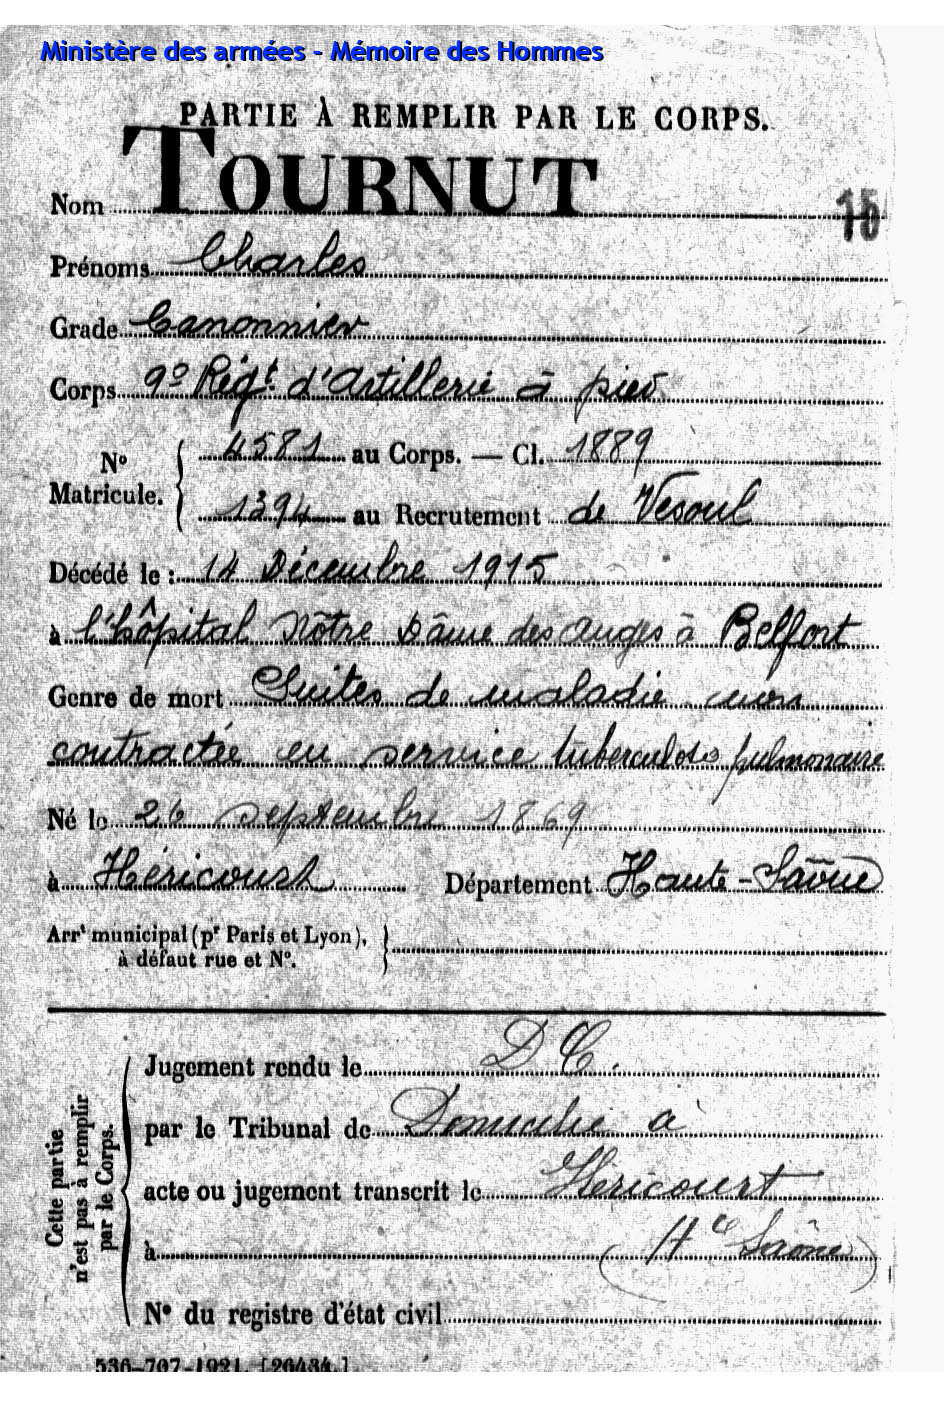 Ministère des armées - Mémoire des Hommes
PARTIE À REMPLIR PAR LE CORPS.
Nom TOURNUT
15
Prénoms Charles
Grade Canonnier
Corps 9e Régt d'Artillerie à pied
N° Matricule. 4581 au Corps. — Cl. 1889
1394 au Recrutement de Vesoul
Décédé le : 14 Décembre 1915
à l'hôpital Nôtre Dâme des anges à Belfort
Genre de mort Suites de maladie non
contractée en service tuberculose pulmonaire
Né le 26 septembre 1869
à Héricourt Département Haute-Saône
Arrt municipal (pr Paris et Lyon),
à défaut rue et N°.
Cette partie
n'est pas à remplir
par le Corps.
Jugement rendu le D C.
par le Tribunal de Domicilié à
acte ou jugement transcrit le Héricourt
à (Hte Saône)
N° du registre d'état civil
536-707-1921. [26434.]